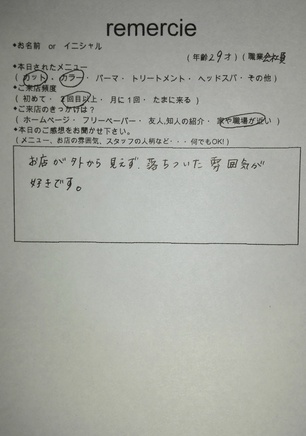 remercie
*お名前 or イニシャル
(年齢29才)(職業会社員
*本日されたメニュー
(カット・カラー・パーマ・トリートメント・ヘッドスパ・その他)
*ご来店頻度
(初めて・2回目以上・月に1回・たまに来る)
*ご来店のきっかけは?
(ホームページ・フリーペーパー・友人,知人の紹介・家や職場が近い)
*本日のご感想をお聞かせ下さい。
(メニュー、お店の雰囲気、スタッフの人柄など・・・何でもOK!)
お店が外から見えず、落ちついた雰囲気が
好きです。